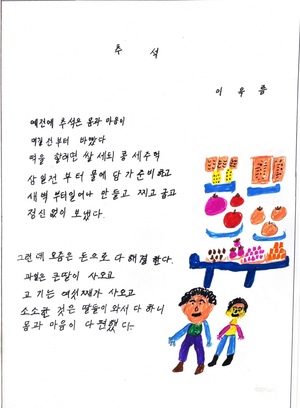 추석
이우름
예전에 추석은 몸과 마음이
몇일전부터 바빴다
떡을 할려면 쌀 세되 콩 세주먹
삼일전부터 물에 담가 준비하고
새벽부터일어나 만들고 찌고 굽고
정신없이 보냈다.
그런데 요즘은 돈으로 다 해결한다.
과일은 큰딸이 사오고
고기는 여섯째가 사오고
소소한 것은 딸들이 와서 다 하니
몸과 마음이 다 편했다.